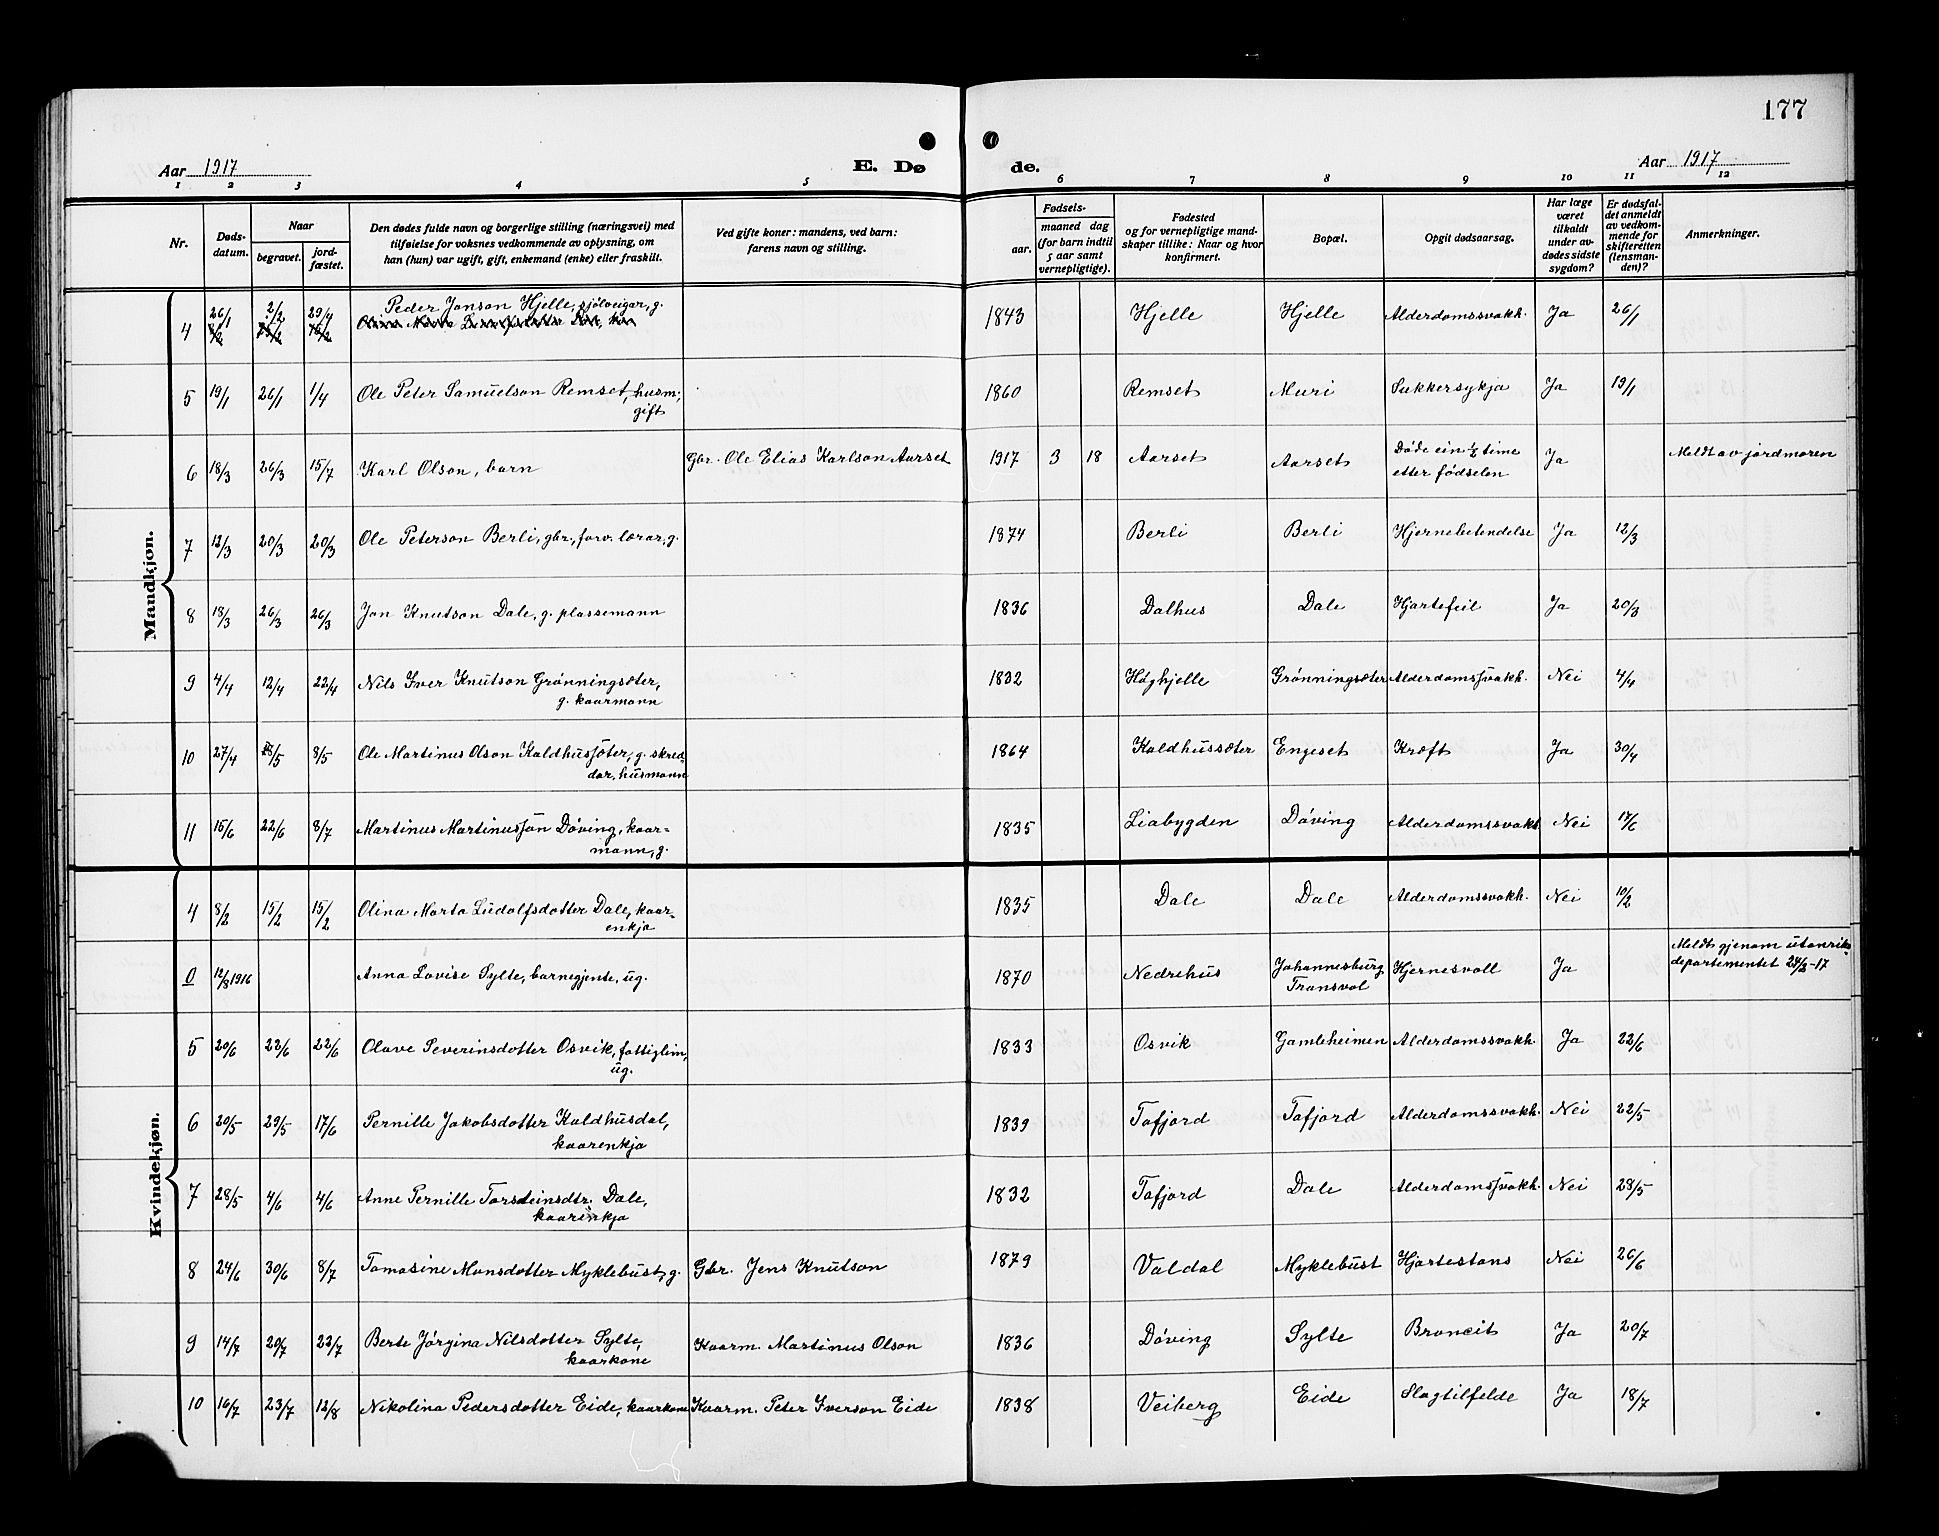 177
Aar 1917 E. Døde. Aar 1917
1 2 3 4 5 6 7 8 9 10 11 12
Nr. Døds-datum. Naar begravet. jord-fæstet. Den dødes fulde navn og borgerlige stilling (næringsvei) med tilføielse for voksnes vedkommende av oplysning, om han (hun) var ugift, gift, enkemand (enke) eller fraskilt. Ved gifte koner: mandens, ved barn: farens navn og stilling. Fødsels- aar. maaned dag (for barn indtil 5 aar samt vernepligtige). Fødested og for vernepligtige mandskaper tillike: Naar og hvor konfirmert. Bopæl. Opgit dødsaarsag. Har læge været tilkaldt under av-dødes sidste sygdom? Er dødsfal-det anmeldt av vedkom-mende for skifteretten (lensman-den)? Anmerkninger.
Mandkjøn.
4 26/1 2/2 29/4 Peder Jonson Hjelle, sjølveigar, g. 1843 Hjelle Hjelle Alderdomssvakh. Ja 26/1
5 19/1 26/1 1/4 Ole Peter Samuelson Remset, husm., gift 1860 Remset Muri Sukkersykja Ja 19/1
6 18/3 26/3 15/7 Karl Olson, barn Gbr. Ole Elias Karlson Aarset 1917 3 18 Aarset Aarset Døde ein 1/2 time etter fødselen Ja Meldt av jordmoren
7 12/3 20/3 20/3 Ole Peterson Berli, gbr., forv. lærar, g. 1874 Berli Berli Hjernebetendelse Ja 12/3
8 18/3 26/3 26/3 Jon Knutson Dale, g. plassemann 1836 Dalhus Dale Hjartefeil Ja 20/3
9 4/4 12/4 22/4 Nils Iver Knutson Grønningsæter, g. kaarmann 1832 Høghjelle Grønningsæter Alderdomssvakh. Nei 4/4
10 27/4 8/5 8/5 Ole Martinus Olson Kaldhussæter, g. skreddar, husmann 1864 Kaldhussæter Engeset Kræft Ja 30/4
11 15/6 22/6 8/7 Martinus Martinusson Døving, kaarmann, g. 1835 Liabygden Døving Alderdomssvakh Nei 17/6
Kvindekjøn.
4 8/2 15/2 15/2 Olina Marta Ludolfsdotter Dale, kaarenkja 1835 Dale Dale Alderdomssvakh. Nei 10/2
0 12/8 1916 Anna Lovise Sylte, barnegjente, ug. 1870 Nedrehus Johannesburg Transval Hjernesvull Ja Meldt gjenom utanriksdepartementet 24/3-17
5 20/6 22/6 22/6 Olave Severinsdotter Osvik, fattiglim, ug. 1833 Osvik Gamleheimen Alderdomssvakh. Ja 22/6
6 20/5 29/5 17/6 Pernille Jakobsdotter Kaldhusdal, kaarenkja 1839 Tafjord Tafjord Alderdomssvakh. Nei 22/5
7 28/5 4/6 4/6 Anne Pernille Torsteinsdtr. Dale, kaarenkja 1832 Tafjord Dale Alderdomssvakh. Nei 29/5
8 24/6 30/6 8/7 Tomasine Monsdotter Myklebust, g. Gbr. Jens Knutson 1879 Valdal Myklebust Hjartestans Nei 26/6
9 14/7 20/7 22/7 Berte Jørgina Nilsdotter Sylte, kaarkone Kaarm. Martinus Olson 1836 Døving Sylte Broncit Ja 20/7
10 16/7 23/7 12/8 Nikolina Pedersdotter Eide, kaarkone Kaarm. Peter Iverson Eide 1838 Veiberg Eide Slagtilfelde Ja 18/7